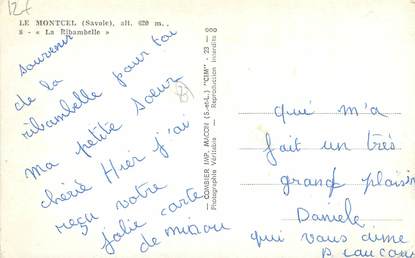 12f
LE MONTCEL (Savoie), alt. 620 m.
8 - « La Ribambelle »
souvenir
de la
ribambelle pour toi
ma petite Soeur
chérie Hier j'ai
reçu votre
jolie carte
de miaou
— COMBIER IMP. MACON (S.-et-L.) "CIM" - 23 — 000
Photographie Véritable — Reproduction Interdite
qui m'a
fait un très
grand plaisir
Danièle
qui vous aime